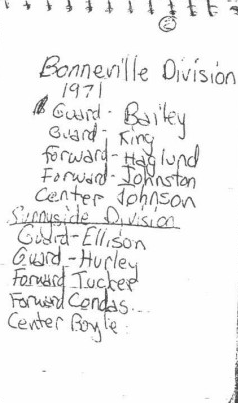 2
Bonneville Division
1971
Guard - Bailey
Guard - King
Forward - Haglund
Forward - Johnston
Center Johnson
Sunnyside Division
Guard - Ellison
Guard - Hurley
Forward Tucker
Forward Condas...
Center Boyle